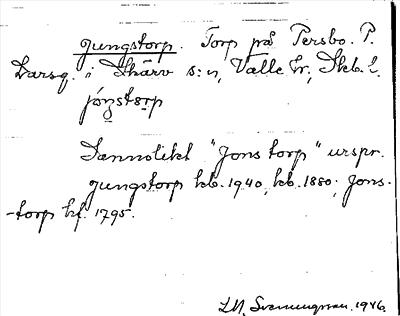 Jungstorp. Torp på Persbo. P.
Larsg. i Skärv s:n, Valle hr, Skb. l.
jóŋstɔrp
Sannolikt "Jonstorp" urspr.
Jungstorp kb. 1940, kb. 1880, Jons-
-torp hf. 1795.
L.M. Svenungsson. 1946.